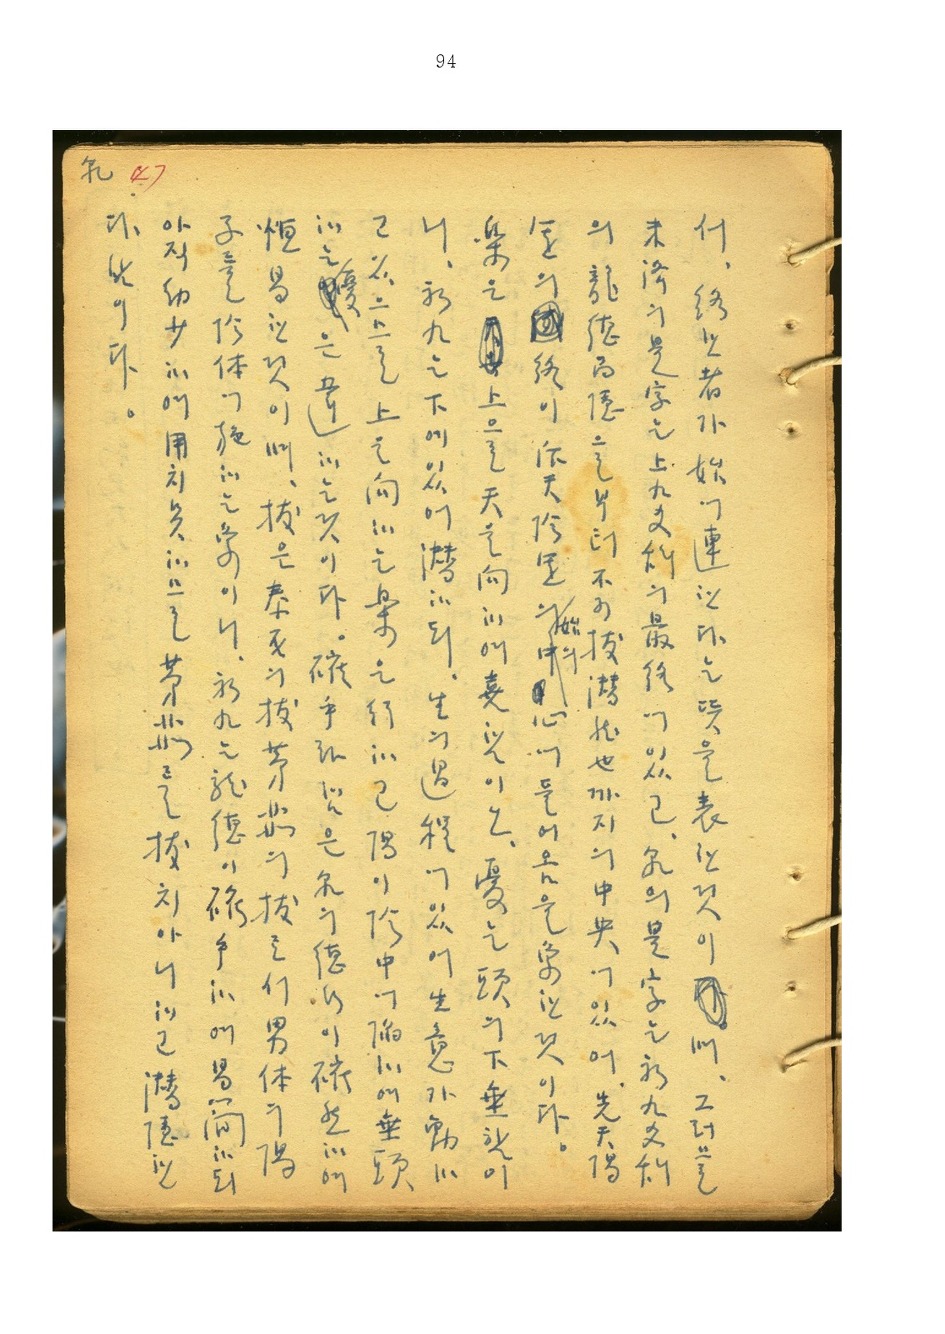 94
乾 47
서, 終은 者가 始에 連한다는 뜻을 表한 것이며, 그러므로
未濟의 是字는 上九爻辭의 最終에 있고, 乾의 是字는 初九爻辭
의 龍德而隱으로부터 不可拔潛龍也까지의 中央에 있어, 先天陽
의 終이 后天陰 의 始의 中心에 들어옴을 象한 것이다。
樂은 上으로 天을 向하여 喜한 이오, 憂는 頭의 下垂한 이
니, 初九는 下에 있어 潛하되, 生의 過程에 있어 生意가 動하
고 있으므로 上을 向하는 象은 行하고 陽이 陰中에 陷하여 垂頭
하는 憂은 違하는 것이다。確乎 은 乾의 德行이 確然하여
恒易한 것이며, 拔은 泰初의 拔茅茹의 拔로서 男体의 陽
子를 陰体에 施하는 象이니, 初九는 龍德이 確乎하여 易簡하되
아직 幼少하여 用치 못하므로 茅茹를 拔치 아니하고 潛隱한
다 함이다。